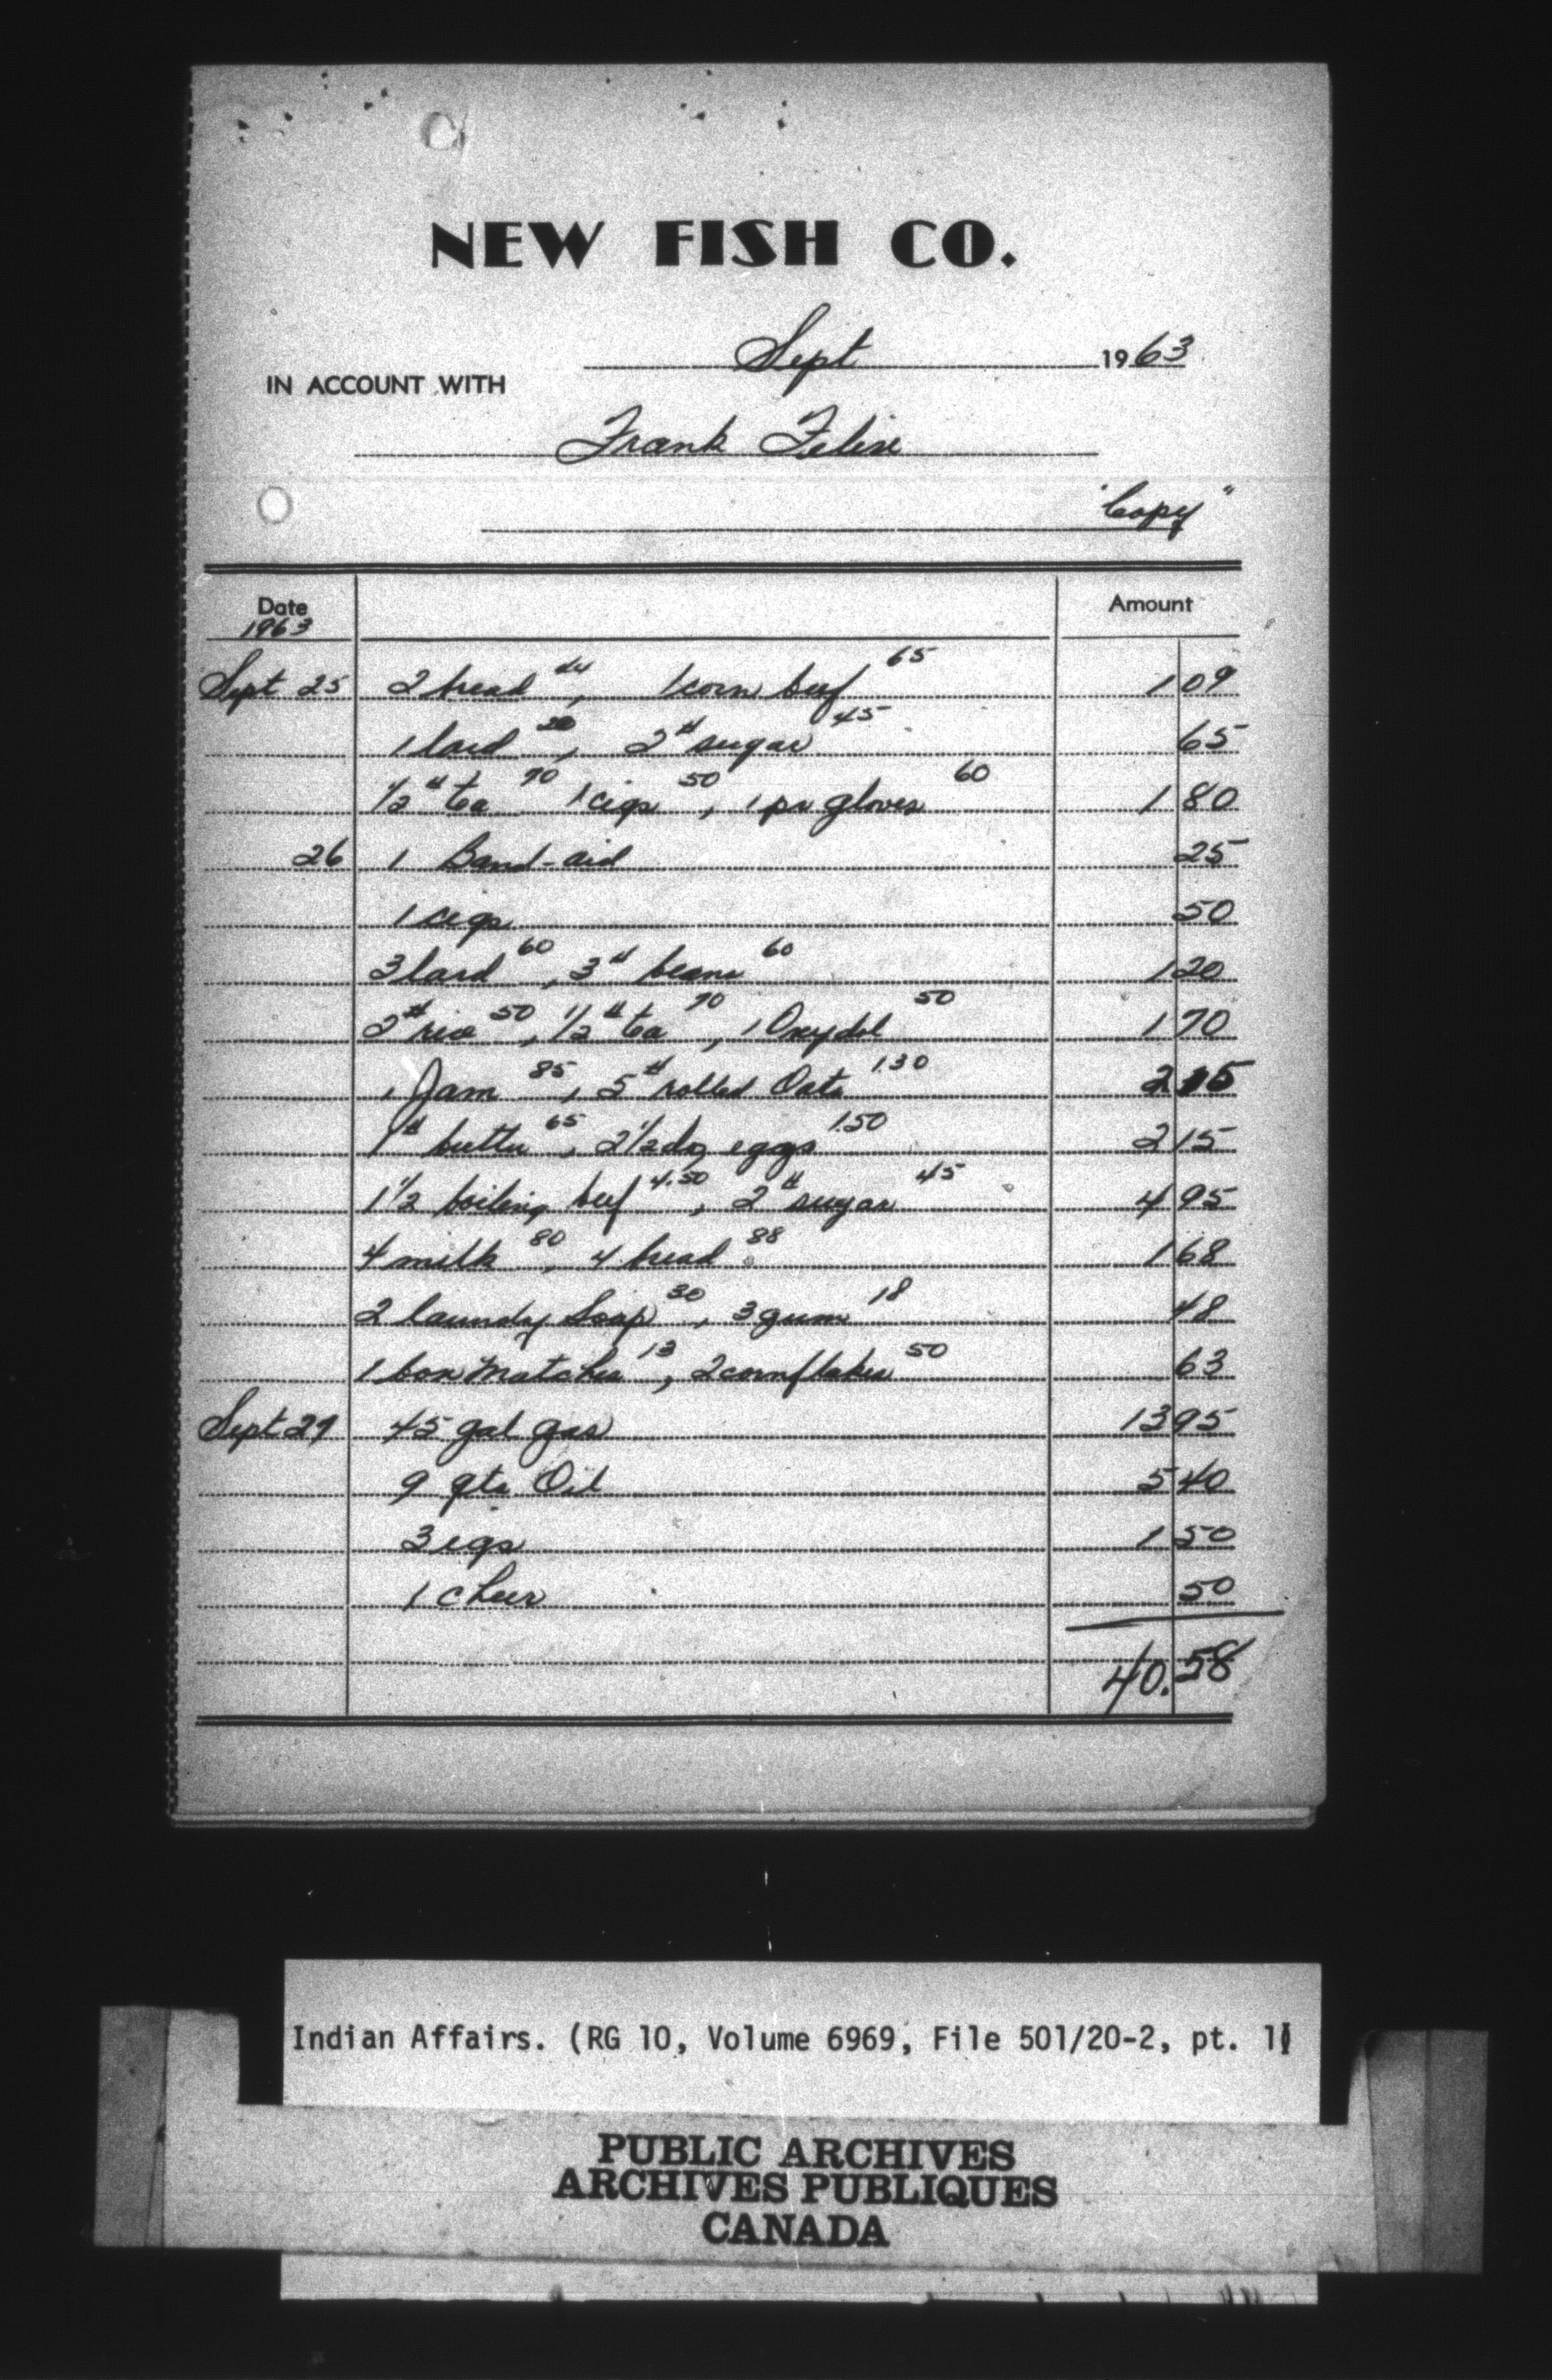 NEW FISH CO.
Sept 1963
IN ACCOUNT WITH
Frank Felix
"Copy"
Date Amount
1963
Sept 25 2 bread 44, 1 corn beef 65 1 09
1 lard 20, 2# sugar 45 65
1/2# tea 70 1 cigs 50, 1 pr gloves 60 1 80
26 1 Band-aid 25
1 cigs 50
3 lard 60, 3# beans 60 1 20
2# rice 50, 1/2# tea 70, 1 Oxydol 50 1 70
1 Jam 85, 5# rolled Oats 1.30 2 15
1# butter 65, 2 1/2 dz eggs 1.50 2 15
1 1/2 boiling beef 4.50, 2# sugar 45 4 95
4 milk 80, 4 bread 88 1 68
2 laundry Soap 30, 3 gum 18 48
1 box Matches 13, 2 cornflakes 50 63
Sept 29 45 gal gas 13 95
9 qts Oil 5 40
3 cigs 1 50
1 cheer 50
40.58
Indian Affairs. (RG 10, Volume 6969, File 501/20-2, pt. 1)
PUBLIC ARCHIVES
ARCHIVES PUBLIQUES
CANADA